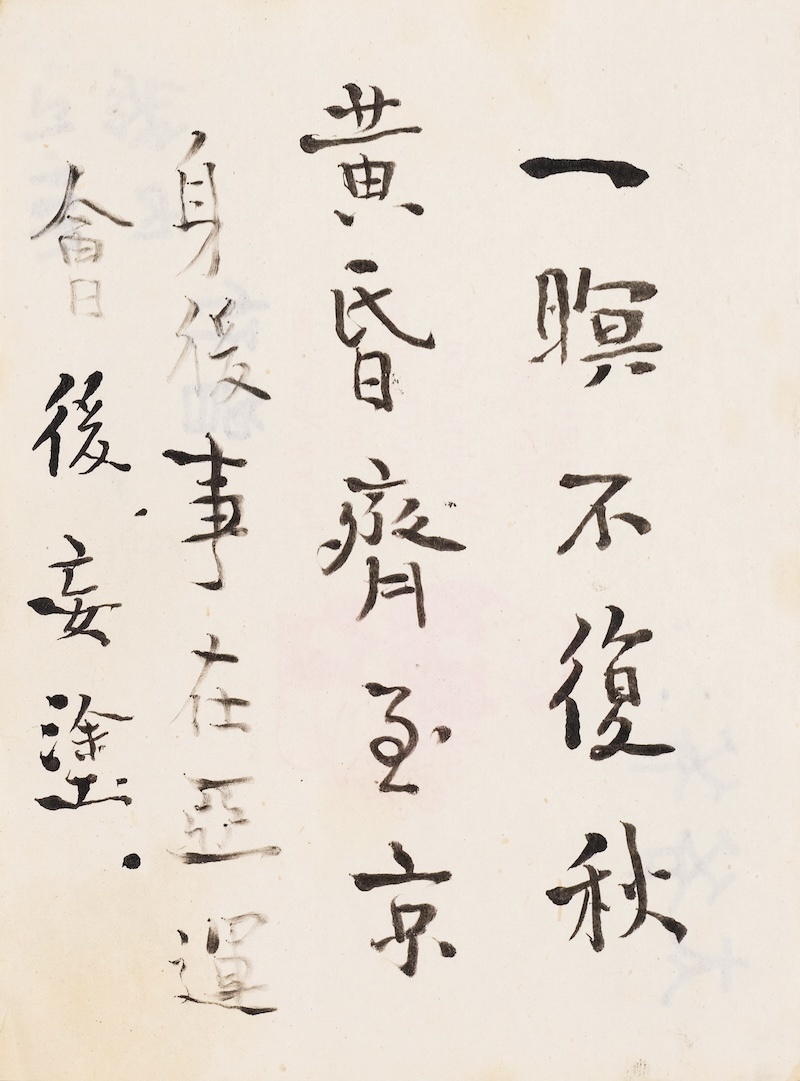 一瞑不復秋
黄昏齊至京
身後事在亞運
會後.妄塗.